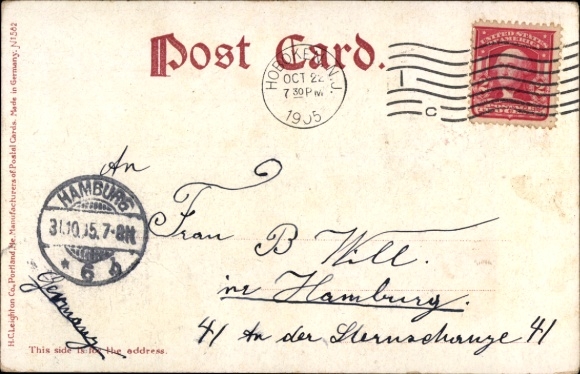 Post Card.
HOBOKEN, N.J.
OCT 22
7 30 PM
1905
1
C
UNITED STATES
OF AMERICA
An
HAMBURG
31.10.05.7-8N
* 6 h
Frau B Will.
in Hamburg.
Germany
41 An der Sternschanze 41
This side is for the address.
H.C. Leighton Co., Portland, Me. Manufacturers of Postal Cards. Made in Germany. N1562